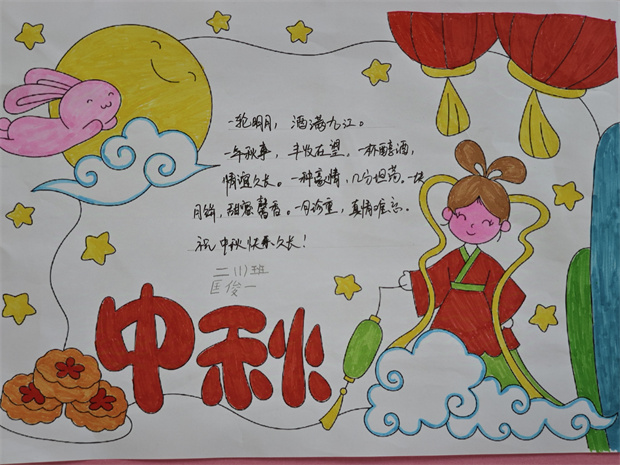 一轮明月，酒满九江。
一年秋事，丰收在望，一杯醇酒，
情谊久长。一种豪情，几分坦荡。一块
月饼，甜蜜馨香。一句珍重，真情难忘。
祝中秋快乐久长！
二(1)班
匡俊一
中秋